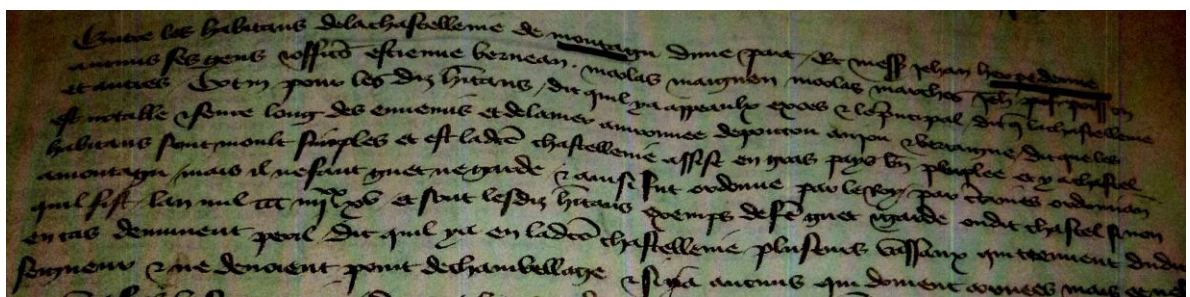 Entre les habitans dela chastellenie de montagu dune part, Et mess Jehan harpedenne
aucuns ses gens & offics estienne berneau. nicolas maignen nicolas marches Jeh poiss on
et autres Dient pour les diz hitans, dit quil ya appeaulx exces & le principal dit q la chastellenie
est notable & seure loing des ennemis et dela mer avironnee de poictou anjou & bretaigne, dit que les
habitans sont moult simples et est ladce chastellenie assise en gras pays bn peuplee et y a chastel
a montagu, mais il ne faut guet ne garde & ainsi fut ordonne par le Roy par ctaines ordonnan
quil fist lan mil ccc iiijxx xv et sont lesdiz hitans exemps de fe guet & garde oudit chastel sinon
en cas deminent peril Dit quil ya en ladce chastellenie plusieurs vassaux qui tiennent dudit
seigneur & ne devoient point de chambellage & si ya aucuns qui doivent corvees mais